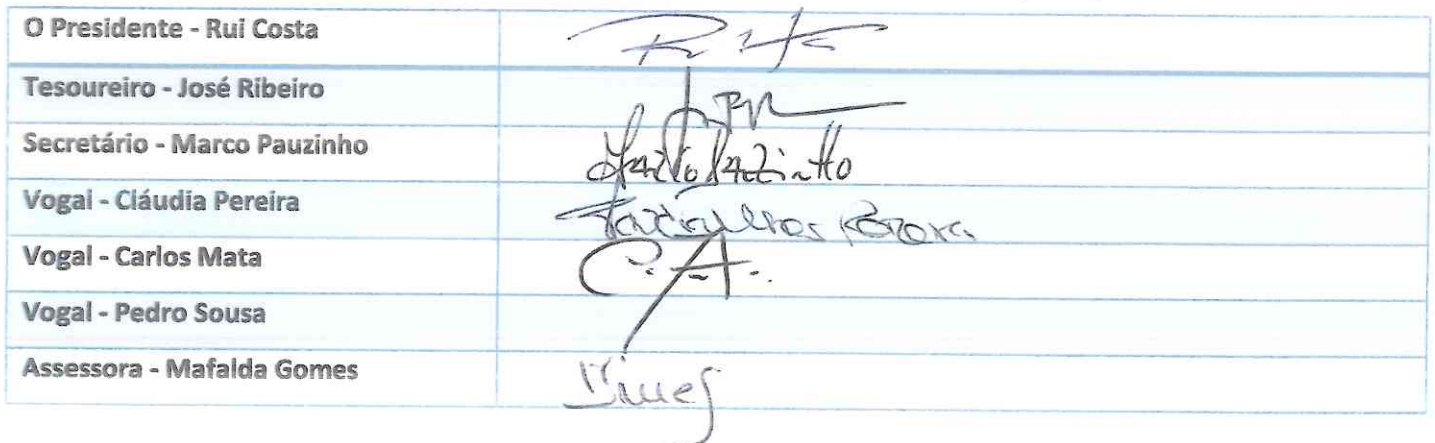 O Presidente - Rui Costa
Tesoureiro - José Ribeiro
Secretário - Marco Pauzinho
Marco Pauzinho
Vogal - Cláudia Pereira
Vogal - Carlos Mata
Vogal - Pedro Sousa
Assessora - Mafalda Gomes